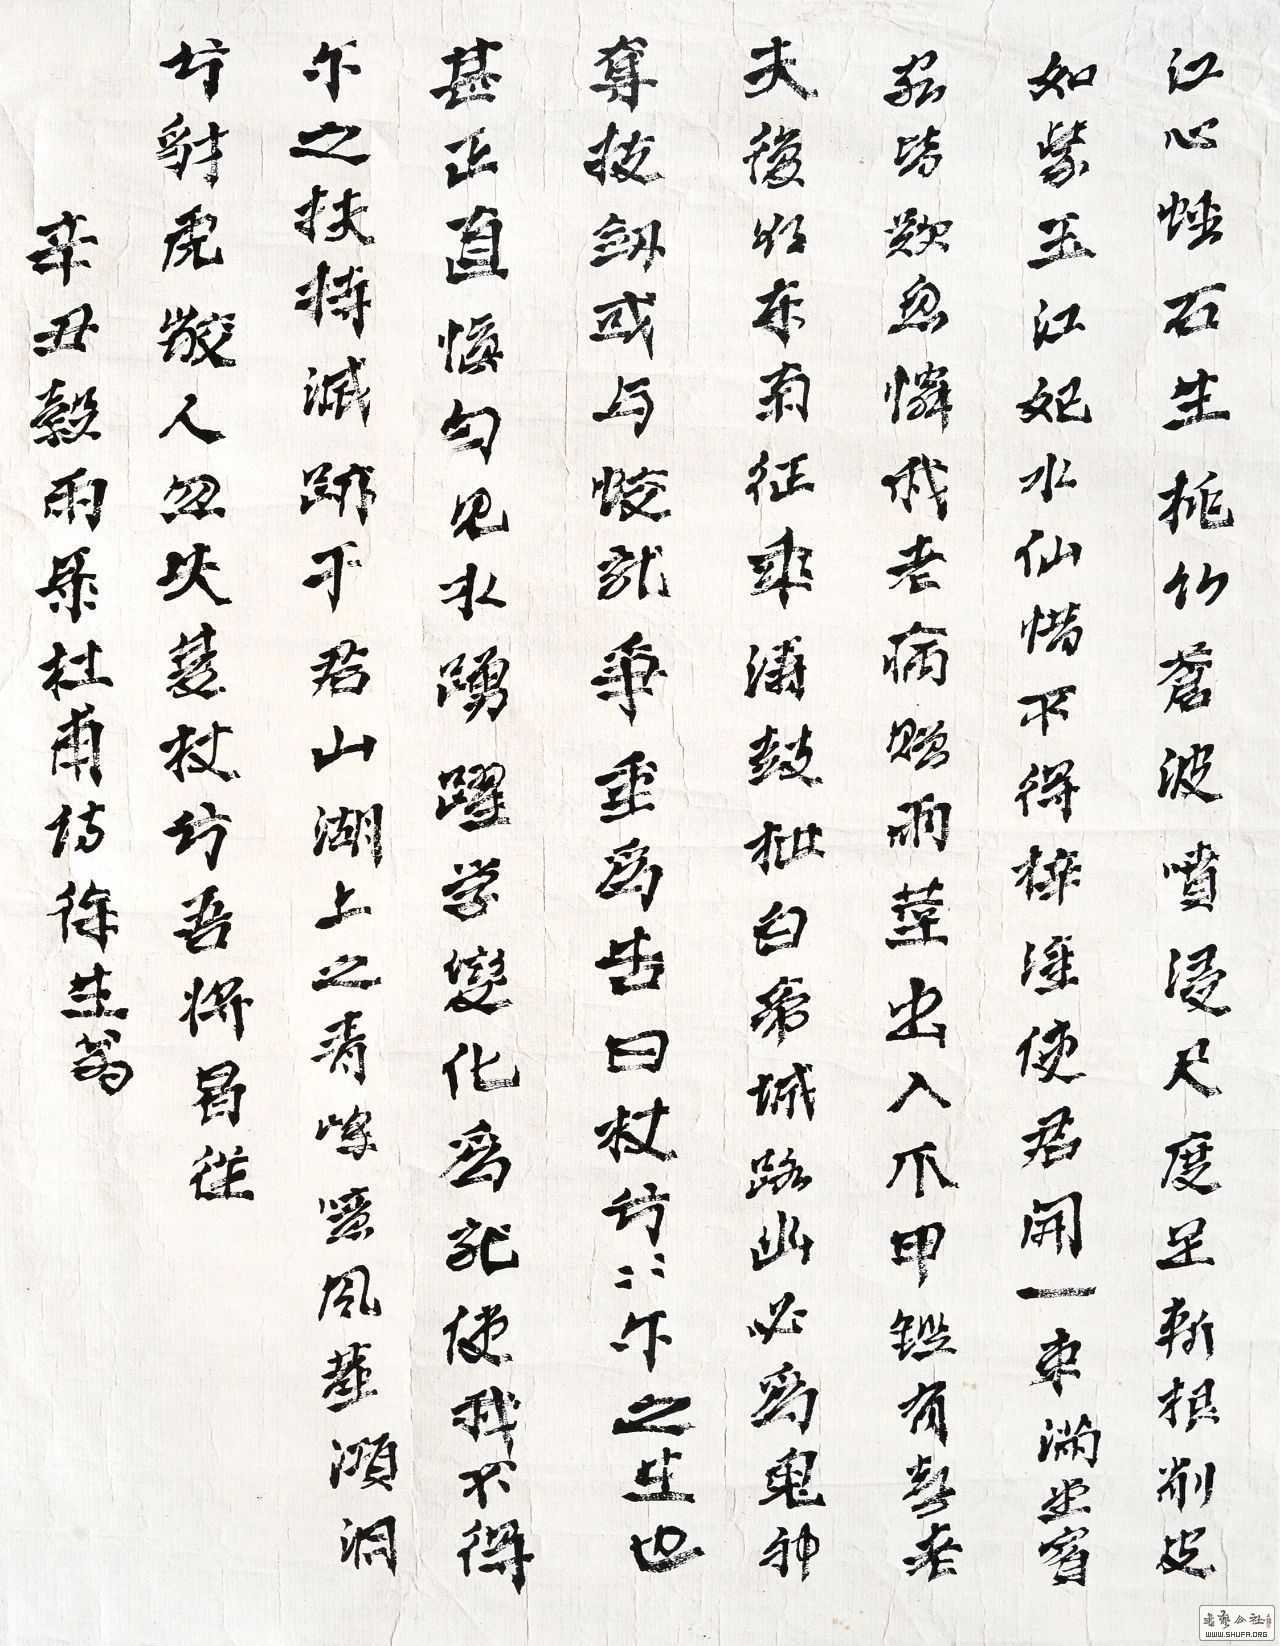 江心蟠石生桃竹蒼波噴浸尺度足斬根削皮
如紫玉江妃水仙惜不得梓潼使君開一束滿堂賓
客皆歎息憐我老病贈兩莖出入爪甲鏗有聲老
夫復欲东南征乘濤鼓枻白帝城路幽必爲鬼神
奪拔劒或与蛟龍爭重爲告曰杖兮〻〻尔之生也
甚正直慎勿見水踴躍学變化爲龍使我不得
尔之扶持滅跡于君山湖上之青峰噫風塵澒洞
兮豺虎齩人忽失雙杖兮吾將曷從
辛丑穀雨录杜甫詩徐生翁
书艺公社
WWW.SHUFA.ORG